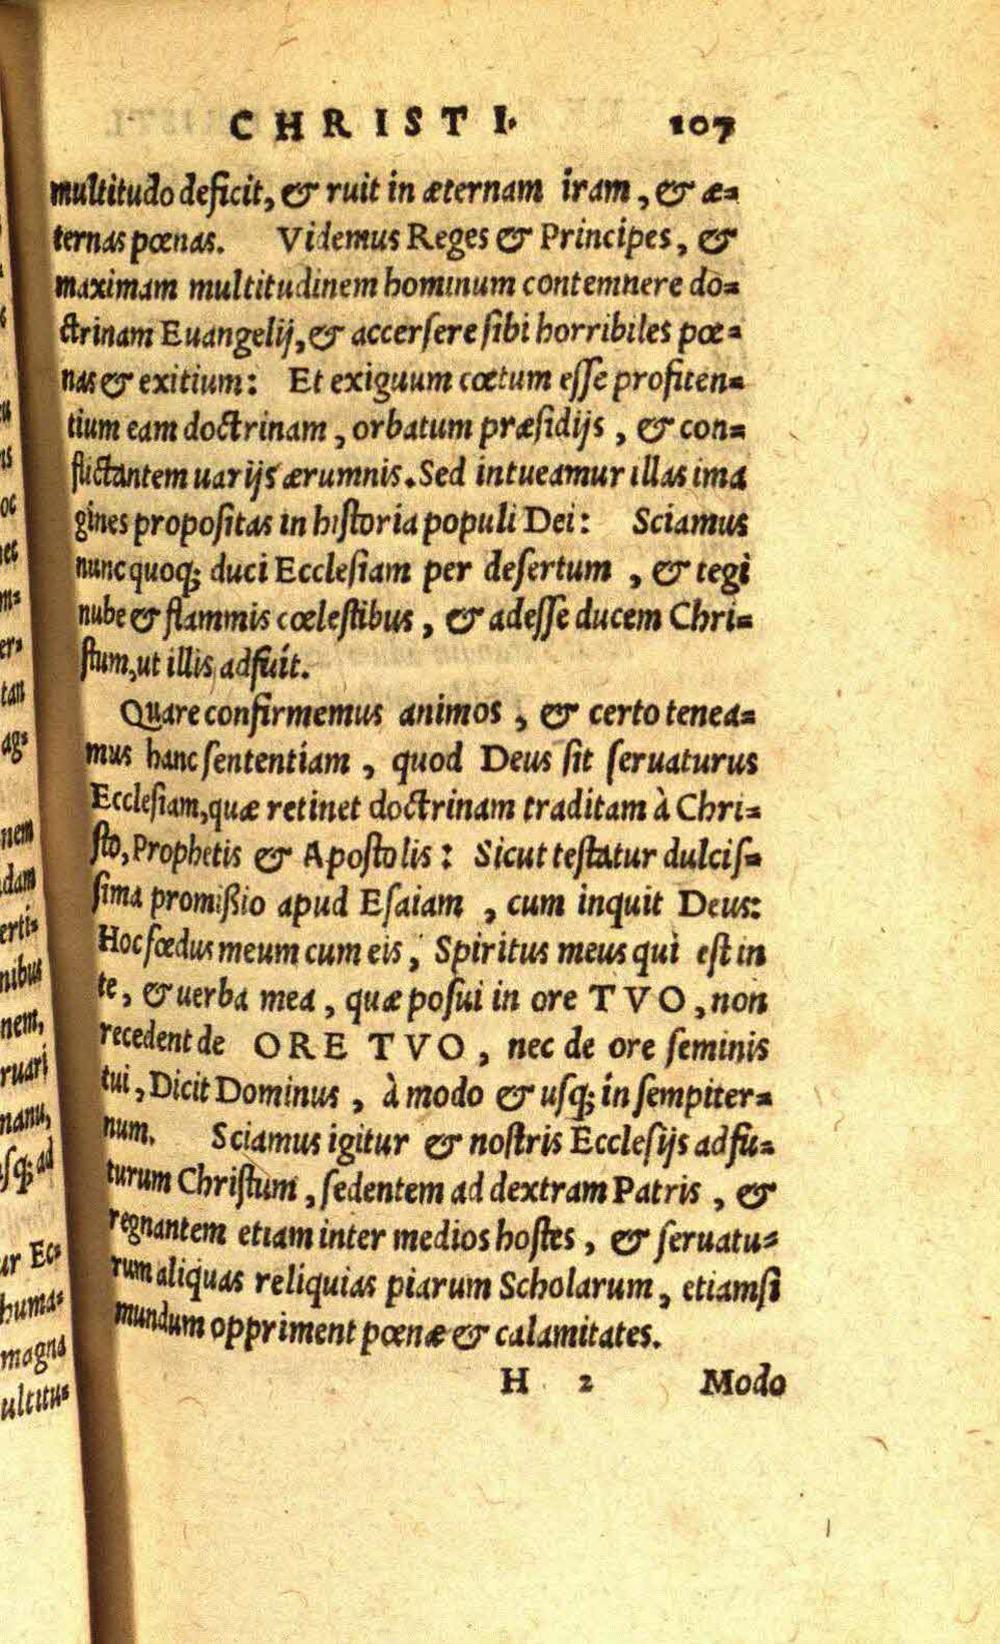 CHRISTI. 107
multitudo deficit, & ruit in æternam iram, & æ=
ternas pœnas. Videmus Reges & Principes, &
maximam multitudinem hominum contemnere do=
ctrinam Euangelij, & accersere sibi horribiles pœ=
nas & exitium: Et exiguum cœtum esse profiten=
tium eam doctrinam, orbatum præsidijs, & con=
flictantem uarijs ærumnis. Sed intueamur illas ima
gines propositas in historia populi Dei: Sciamus
nunc quoq; duci Ecclesiam per desertum, & tegi
nube & flammis cœlestibus, & adesse ducem Chri=
stum, ut illis adfuit.
Quare confirmemus animos, & certo tenea=
mus hanc sententiam, quod Deus sit seruaturus
Ecclesiam, quæ retinet doctrinam traditam à Chri=
sto, Prophetis & Apostolis: Sicut testatur dulcis=
sima promißio apud Esaiam, cum inquit Deus:
Hoc fœdus meum cum eis, Spiritus meus qui est in
te, & uerba mea, quæ posui in ore TVO, non
recedent de ORE TVO, nec de ore seminis
tui, Dicit Dominus, à modo & usq; in sempiter=
num. Sciamus igitur & nostris Ecclesijs adfu=
turum Christum, sedentem ad dextram Patris, &
regnantem etiam inter medios hostes, & seruatu=
rum aliquas reliquias piarum Scholarum, etiamsi
mundum oppriment pœnæ & calamitates.
H 2 Modo